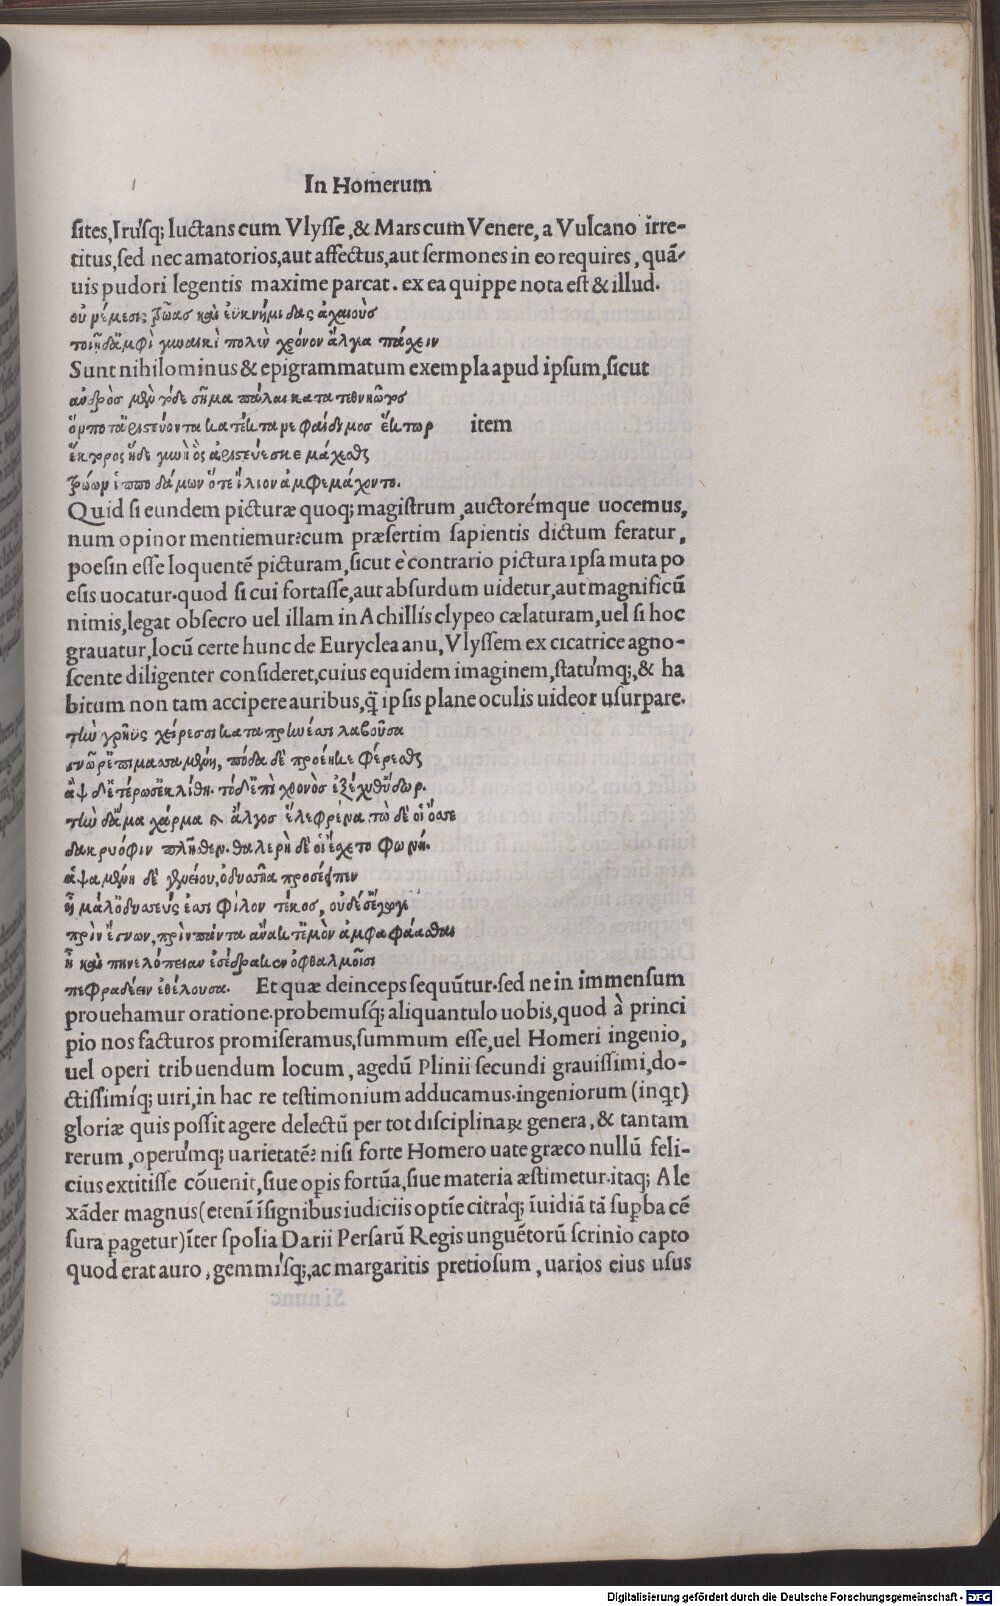 In Homerum
sites, Irusq; luctans cum Vlysse, & Mars cum Venere, a Vulcano irre-
titus, sed nec amatorios, aut affectus, aut sermones in eo requires, quã-
uis pudori legentis maxime parcat. ex ea quippe nota est & illud.
οὐ νέμεσις τρῶας καὶ ἐϋκνήμιδας ἀχαιοὺσ
τοιῇδ' ἄμφὶ γυναικὶ πολὺν χρόνον ἄλγα πάχειν
Sunt nihilominus & epigrammatum exempla apud ipsum, sicut
ανδρὸσ μὲν τόδε σῆμα πάλαι κατατεθνηῶτοσ
ὅμ ποτ' ἀριστεύοντα κατέκτα με φαίδιμοσ ἕκτωρ item
ἕκτορος ἥδε γυνὴ ὃς ἀριστεύεσκε μάχεσθαι
τρώων ἱπποδάμων ὅτε ἴλιον ἀμφεμάχοντο.
Quid si eundem picturæ quoq; magistrum, auctorémque uocemus,
num opinor mentiemur? cum præsertim sapientis dictum feratur,
poesin esse loquentẽ picturam, sicut è contrario pictura ipsa muta po
esis uocatur. quod si cui fortasse, aut absurdum uidetur, aut magnificũ
nimis, legat obsecro uel illam in Achillis clypeo cælaturam, uel si hoc
grauatur, locũ certe hunc de Euryclea anu, Vlyssem ex cicatrice agno-
scente diligenter consideret, cuius equidem imaginem, statúmq;, & ha
bitum non tam accipere auribus, q̃ ipsis plane oculis uideor usurpare.
τὴν γρηῢς χείρεσσι καταπρηνέσσι λαβοῦσα
γνῶ ῥ' ἐπιμασσαμένη, πόδα δὲ προέηκε φέρεσθαι
ἂψ δ' ἑτέρωσ' ἐκλίθη. τὸ δ' ἐπὶ χθονὸσ ἐξέχυθ' ὕδωρ.
τὴν δ' ἅμα χάρμα καὶ ἄλγοσ ἕλε φρένα. τὼ δέ οἱ ὄσσε
δακρυόφιν πλῆσθεν. θαλερὴ δέ οἱ ἔχετο φωνή.
ἁψαμένη δὲ γενείου, ὀδυσσῆα προσέειπεν
ἦ μάλ' ὀδυσσεύς ἐσσι φίλον τέκος, οὐδέ σ' ἔγωγε
πρὶν ἔγνων, πρὶν πάντα ἄνακτ' ἐμὸν ἀμφαφάασθαι
ἦ καὶ πηνελόπειαν ἐσέδρακεν ὀφθαλμοῖσι
πεφραδέειν ἐθέλουσα. Et quæ deinceps sequũtur. sed ne in immensum
prouehamur oratione. probemusq́; aliquantulo uobis, quod à princi
pio nos facturos promiseramus, summum esse, uel Homeri ingenio,
uel operi tribuendum locum, agedũ Plinii secundi grauissimi, do-
ctissimíq; uiri, in hac re testimonium adducamus. ingeniorum (inq̃t)
gloriæ quis possit agere delectũ per tot disciplinaꝝ genera, & tantam
rerum, operúmq; uarietatẽ? nisi forte Homero uate græco nullũ feli-
cius extitisse cõuenit, siue opis fortũa, siue materia æstimetur. itaq; Ale
xãder magnus (etenĩ ĩsignibus iudiciis optĩe citráq; ĩuidiã tã suꝑba cẽ
sura pagetur) ĩter spolia Darii Persarũ Regis unguẽtorũ scrinio capto
quod erat auro, gemmísq;, ac margaritis pretiosum, uarios eius usus
Digitalisierung gefördert durch die Deutsche Forschungsgemeinschaft - DFG